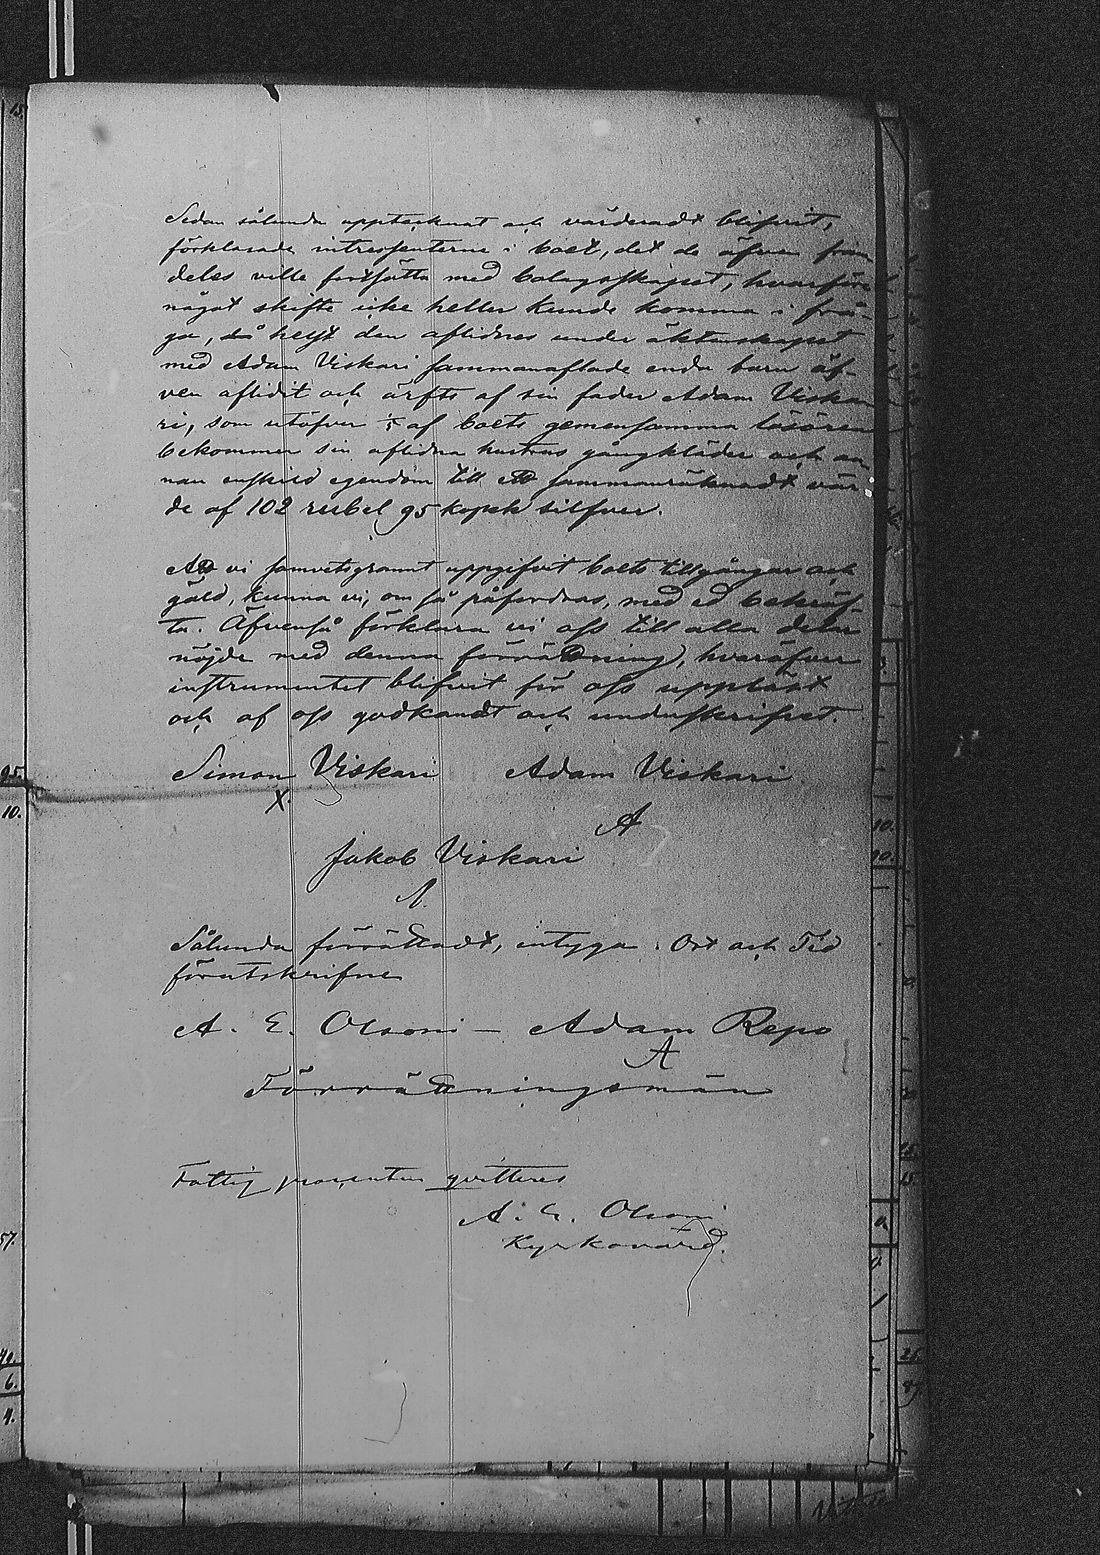 Sedan sålunda upptecknat och värderadt blifvit,
förklarade intressenterne i boet, det de äfven fram
deles ville fortsätta med bolagsskapet, hvarföre
något skifte icke heller kunde komma i frå-
ga, då helst den aflidnes under äktenskapet
med Adam Viskari sammanaflade enda barn äf-
ven aflidit och ärfts af sin fader Adam Viska
ri, som utöfver af boets gemensamma lösören
bekommer sin aflidna hustrus gångkläder och an
nan enskild egendom till ett sammanräknadt vär
de af 102 rubel 95 kopek silfver.
Att vi samvetsgrannt uppgifvit boets tillgångar och
gäld, kunna vi, om så påfordras, med ed bekräf-
ta. Äfvenså förklara vi oss till alla delar
nöjde med denna förrättning, hvaröfver
instrumentet blifvit för oss uppläst
och af oss godkändt och underskrifvet.
Simon Viskari Adam Viskari
X. A
Jakob Viskari
A.
Sålunda förrättadt, intyga. Ort och Tid
förutskrifne
A. E. Olsoni — Adam Repo
A
Förrättningsmän
Fattig procenten qvitteras
A. E. Olsoni
Kyrkovärd.
15.
95.
10.
57.
40.
6.
4.
10.